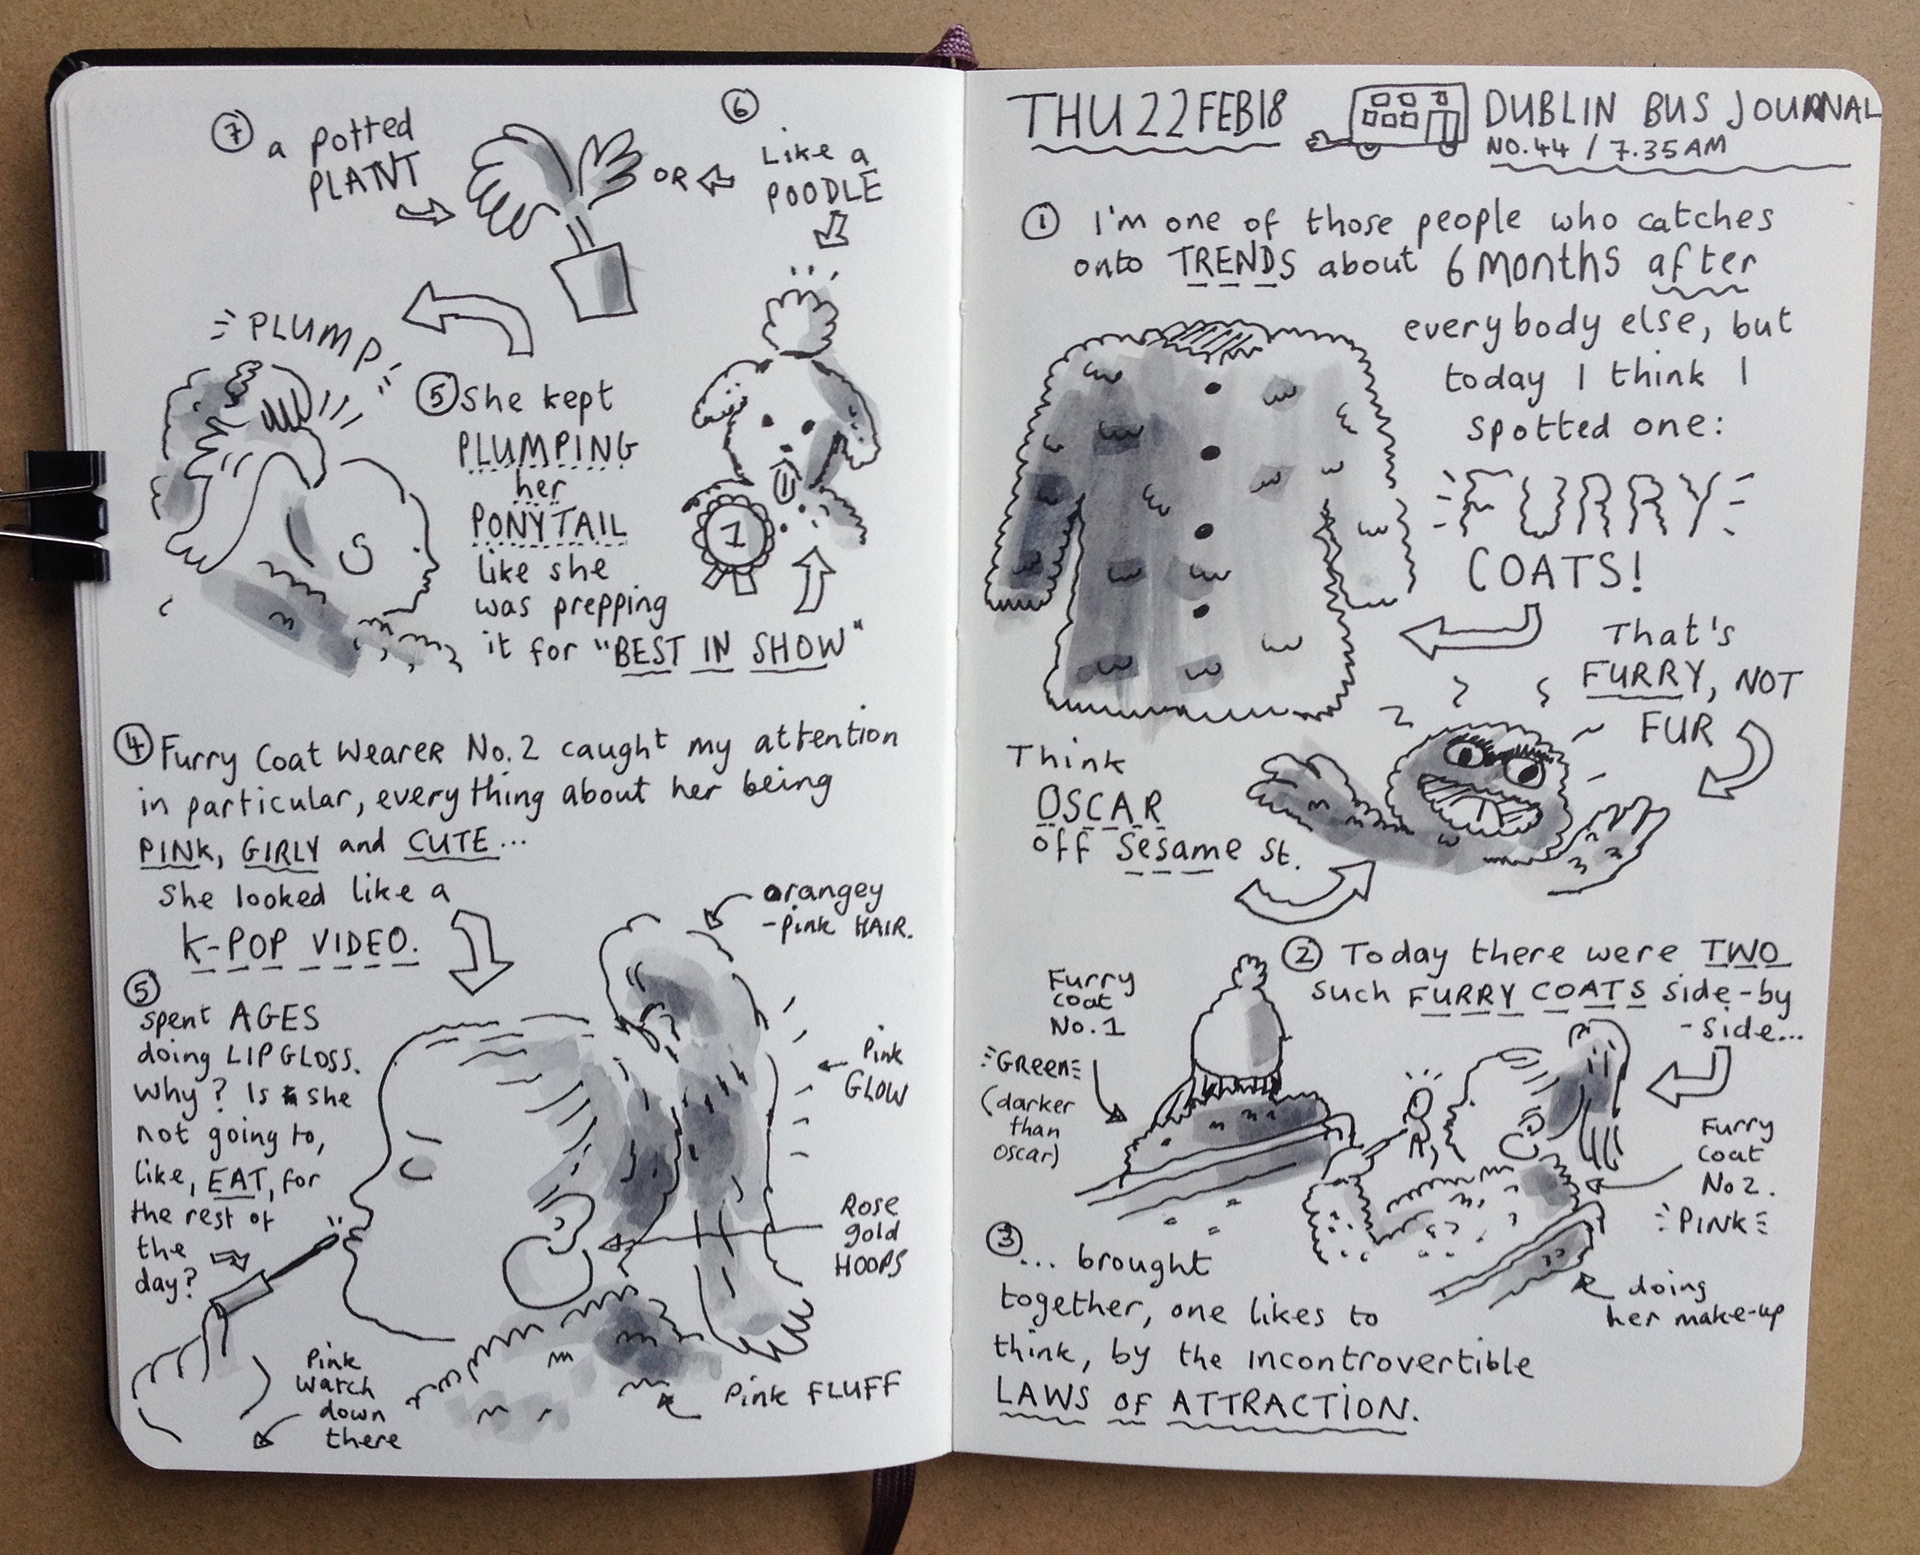 THU 22 FEB 18
DUBLIN BUS JOURNAL
NO. 44 / 7.35 AM
① I'm one of those people who catches
onto TRENDS about 6 months after
everybody else, but
today I think I
spotted one:
FURRY
COATS!
That's
FURRY, NOT
FUR
Think
OSCAR
off Sesame St.
② Today there were TWO
such FURRY COATS side-by
-side...
Furry
coat
No. 1
GREEN
(darker
than
Oscar)
Furry
coat
No 2.
PINK
doing
her make-up
③ ... brought
together, one likes to
think, by the incontrovertible
LAWS OF ATTRACTION.
④ Furry Coat Wearer No. 2 caught my attention
in particular, everything about her being
PINK, GIRLY and CUTE...
She looked like a
K-POP VIDEO.
orangey
-pink HAIR.
Pink
GLOW
Rose
gold
HOOPS
Pink FLUFF
Pink
watch
down
there
⑤
spent AGES
doing LIPGLOSS.
Why? Is she
not going to,
like, EAT, for
the rest of
the
day?
⑤ She kept
PLUMPING
her
PONYTAIL
like she
was prepping
it for "BEST IN SHOW"
PLUMP
⑥
Like a
POODLE
1
OR
⑦ a potted
PLANT